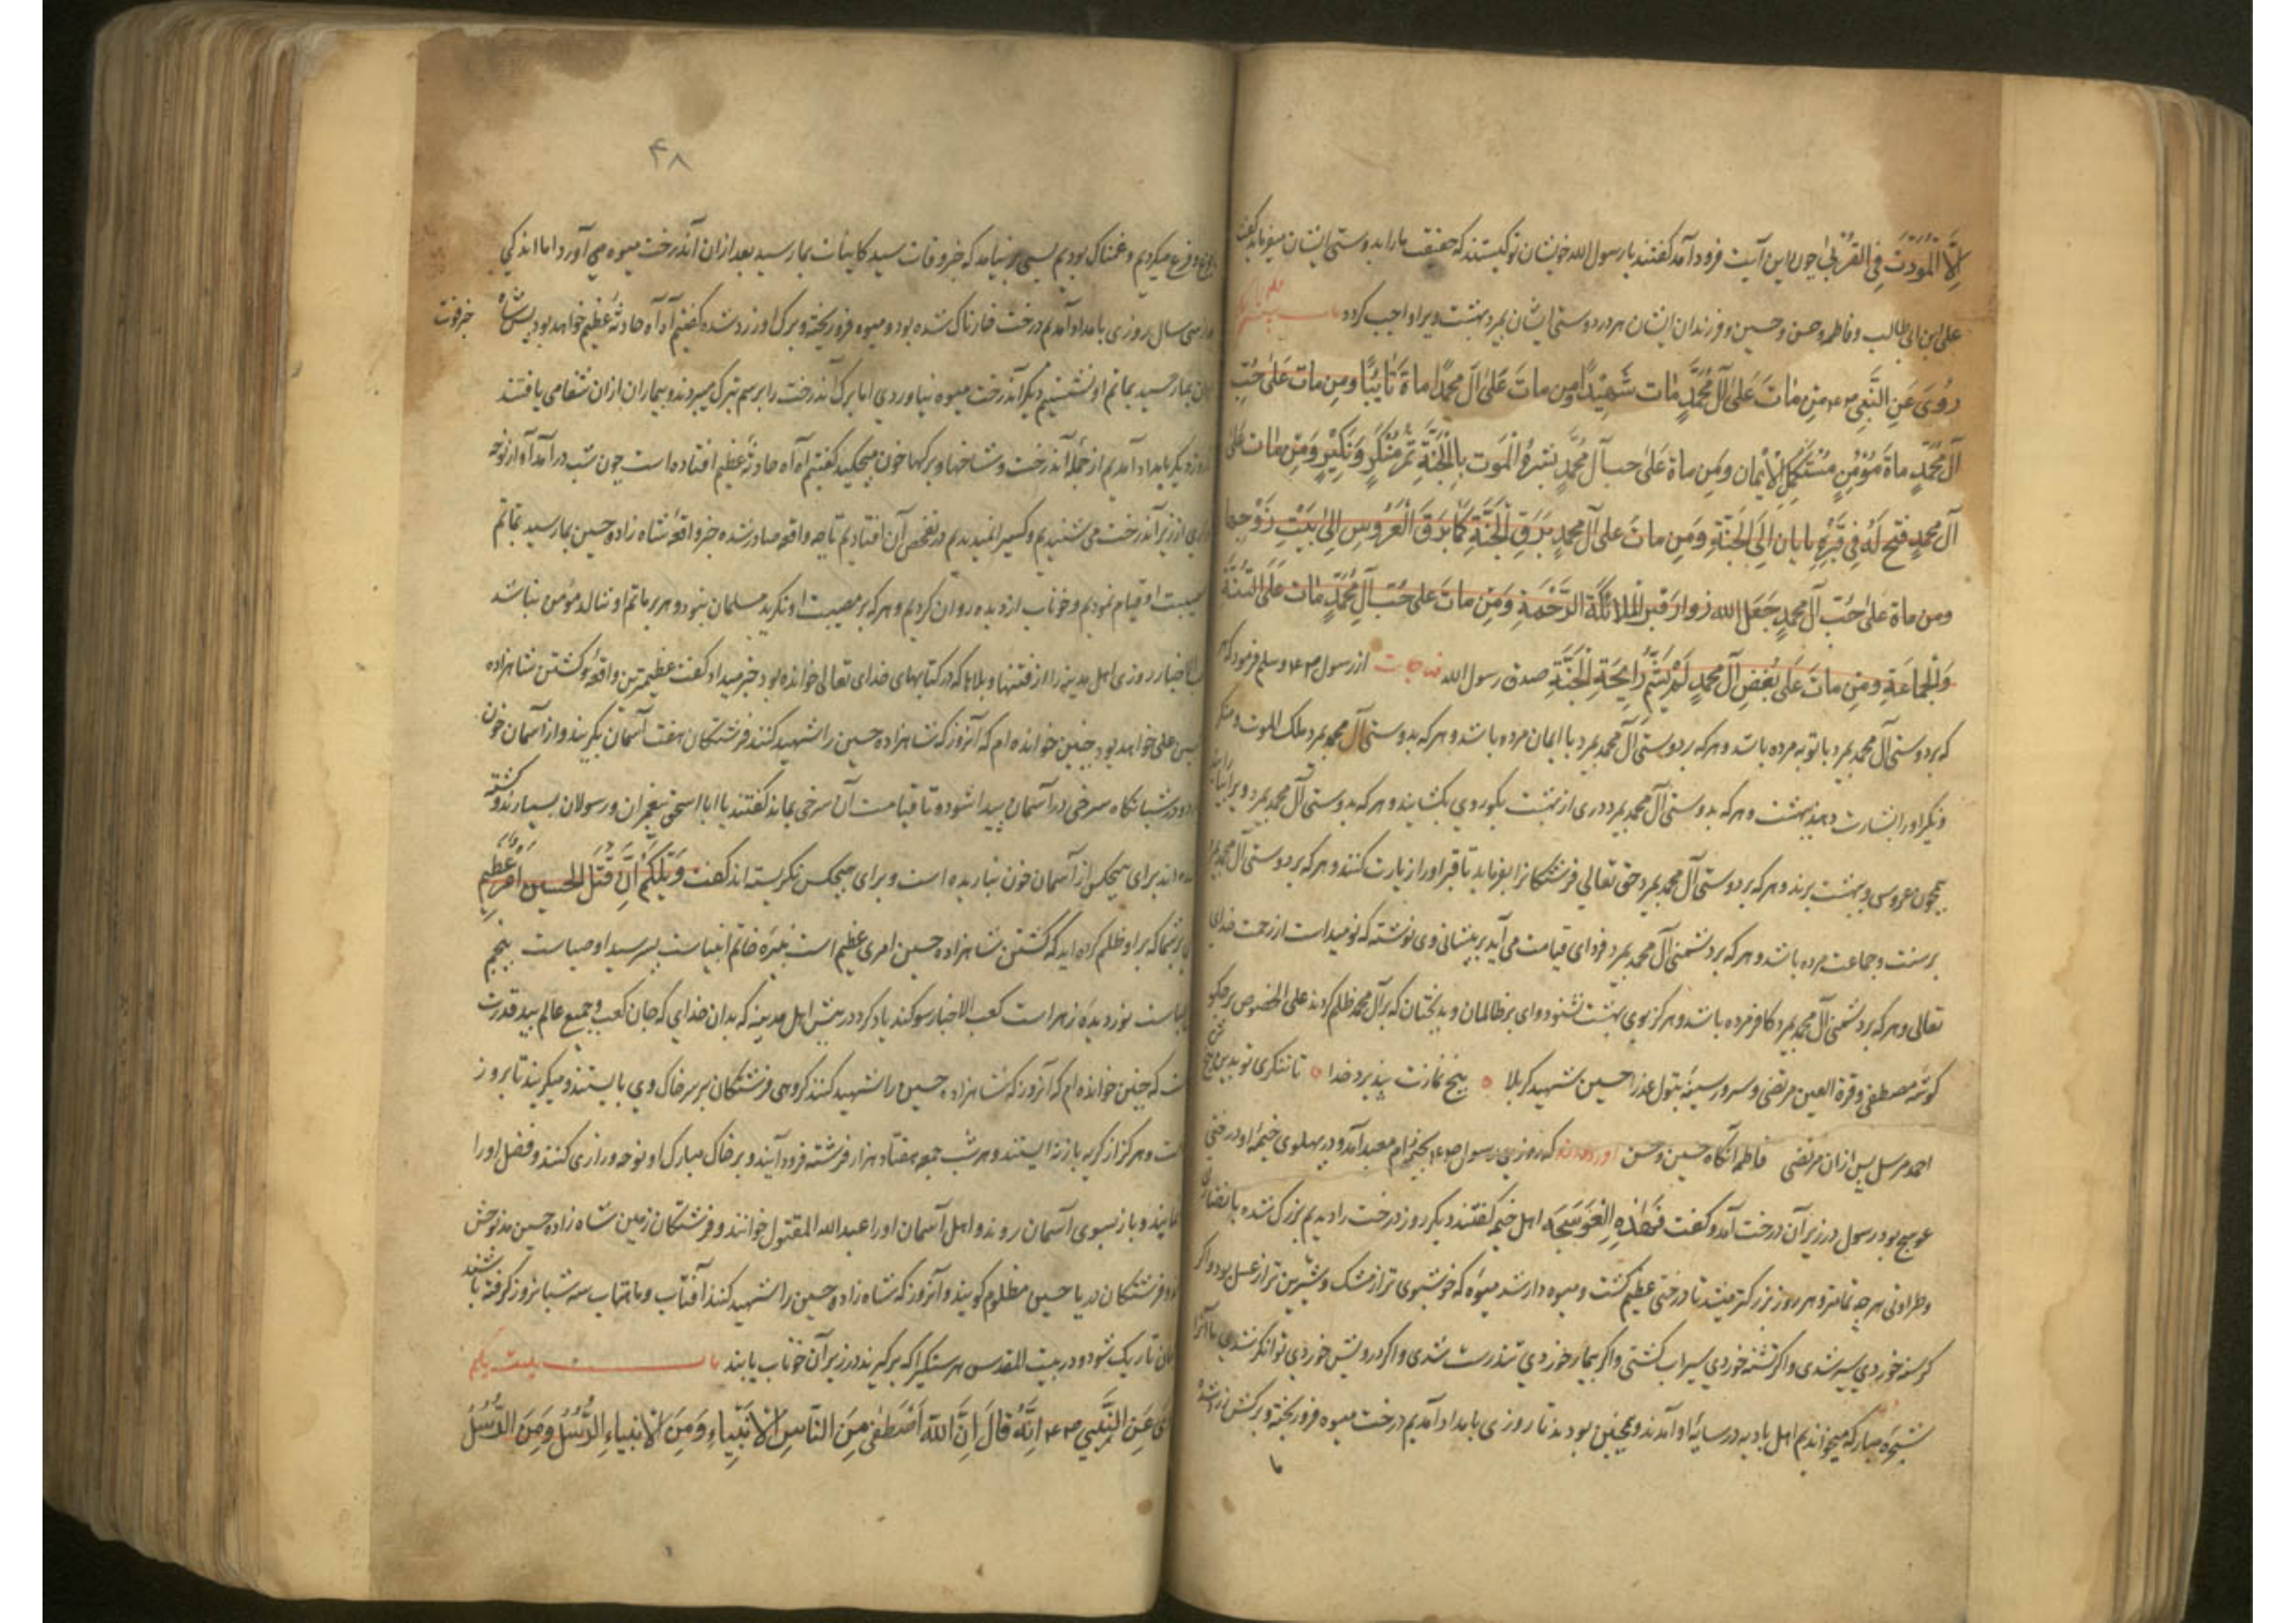 اِلَّا الْمَوَدَّتَ فِی الْقُرْبیٰ چون این آیت فرود آمد گفتند یا رسول الله خویشان تو کیستند که حقیقت ما را بدوستی ایشان میفرماید گفت
علی ابن ابی طالب و فاطمه و حسن و حسین و فرزندان ایشان هر در دوستی ایشان بمیرد بهشت ویرا واجب کردد
رُوِیَ عَنِ النَّبِی مَن مٰاتَ عَلیٰ آلِ مُحَمَّدٍ مٰات شَهِیْدًا ومن ماتَ عَلیٰ آل محمدٍ ماة تٰائِبًا ومن مات عَلیٰ حُبِّ
آل مُحَمَّدٍ ماةَ مُؤْمِنٍ مُسْتَكْمِلُ الْاِیْمٰان وَمَن ماة عَلیٰ حب آل مُحَمَّدٍ بَشَّرهُ الْمَوت بِالْجَنَّةِ ثُمَّ مُنْكَرٍ وَنَكِیْرٍ وَمَن مٰات عَلیٰ
آل مُحمدٍ فتح لَهُ فِی قَبْرِهِ بابان اِلَی الْجَنَّةِ وَمَن ماتَ عَلی آل مُحمدٍ یَزِفُّ الْجَنَّةِ كَمٰا یَزِفُّ الْعَرُوسِ اِلیٰ بَیْتِ زَوْجِها
ومن ماة عَلیٰ حُبِّ آل مُحمدٍ جَعَلَ الله زوار قبر الملائكة الرَّحْمَةِ وَمَن ماتَ عَلی حُبِّ آلِ مُحَمَّدٍ مٰات عَلَی السُّنَّة
وَالْجَماعَةِ ومَن ماتَ عَلَی بُغضِ آل مُحمدٍ لَمْ یَشُمَّ رٰایِحَةِ الْجَنَّةِ صدق رسول الله از رسول وسلم فرمود که هر
که بر دوستی آل محمد بمیرد با توبه مرده باشد و هر که بر دوستی آل محمد بمیرد با ایمان مرده باشد و هر که بدوستی آل محمد بمیرد ملک الموت و منکر
و نکیر او را بشارت دهند ببهشت و هر که بدوستی آل محمد بمیرد دری از بهشت بکور وی بکشایند و هر که بدوستی آل محمد بمیرد ویرا
همچون عروسی ببهشت برند و هر که بر دوستی آل محمد بمیرد حق تعالی فرشتکانرا بفرماید تا قبر او را زیارت کنند و هر که بر دوستی آل محمد بمیرد
بر سنت و جماعت مرده باشد و هر که بر دشمنی آل محمد بمیرد فردای قیامت می آید بر پیشانی وی نوشته که نومید است از رحمت خدای
تعالی و هر که بر دشمنی آل محمد بمیرد کافر مرده باشد و هرکز بوی بهشت نشنود وای بر ظالمان و بدبختان که بر آل محمد ظلم کردند علی الخصوص بر جکر
کوشهٔ مصطفی و قرة العین مرتضی و سرور سینهٔ بتول عذرا حسین شهید کربلا پنج نمازت بپذیرد خدا تا ننکری تو بدین پنج
احمد مرسل پس ازان مرتضی فاطمه آنکاه حسین و حسن که روزی رسول بخیمهٔ ام معبد آمد و در پهلوی خیمهٔ او درختی
عوسج بود رسول در زیر آن درخت آمد و گفت اهل خیمه گفتند دیگر روز درخت را دیدیم بزرک شده با نضارتی
و طراوتی هرچه تمامتر و هر روز بزرکتر میشد تا درختی عظیم کشت و میوه دار شد میوهٔ که خوشبوی تر از مشک و شیرین تر از عسل بود و اکر
کرسنه خوردی سیر شدی و اکر تشنه خوردی سیراب کشتی و اکر بیمار خوردی تندرست شدی و اکر درویش خوردی توانکر شدی ما آنرا
شجرهٔ مبارکه میخواندیم اهل بادیه در سایهٔ او آمدند و همچنین بودند تا روزی بامداد آمدیم درخت میوه فرو ریخته و برکش زرد شده
ما
۴۸
جزع و فزع میکردیم و غمناک بودیم بسی بر نیامد که خبر وفات سید کاینات بما رسید بعد ازان آندرخت میوه می آورد اما اندکی
بعد از سی سال روزی بامداد آمدیم درخت خارناک شده بود و میوه فرو ریخته و برک او زرد شده گفتیم آه آه حادثهٔ عظیم خواهد بود پس
خبر فوت
بما رسید بماتم او نشستیم دیگر آندرخت میوه نیاوردی اما برک آندرخت را برسم تبرک میبردند و بیماران ازان شفا می یافتند
روز دیگر بامداد آمدیم از جمله آندرخت و شاخها و برکها خون میچکید گفتیم آه آه حادثهٔ عظیم افتاده است چون شب در آمد آواز نوحه
از زیر آندرخت می شنیدیم و کسیرا نمیدیدیم در تفحص آن افتادیم تا چه واقعه صادر شده خبر واقعهٔ شاه زاده حسین بما رسید بماتم
مصیبت او قیام نمودیم و خوناب از دیده روان کردیم و هر که بر مصیبت او نکرید مسلمان نبود و هر بر ماتم او ننالد مؤمن نباشد
الاخبار روزی اهل مدینه را از فتنها و بلاها که در کتابهای خدای تعالی خوانده بود خبر میداد گفت عظیمترین واقعهٔ کشتن شاهزاده
حسین علی خواهد بود چنین خوانده ام که آنروز که شاهزاده حسین را شهید کنند فرشتکان هفت آسمان بکریند و از آسمان خون
و در شبانکاه سرخی در آسمان پیدا شود و تا قیامت آن سرخی بماند گفتند یا ابا اسحق پیغمبران و رسولان بسیارند و کشته
شده اند برای هیچکس از آسمان خون نباریده است و برای هیچکس نکریسته اند گفت وَیْلَكُمْ اَنَّ قَتْلَ الحسین اَمْرٌ عَظِیْم
بر شما که بر او ظلم کرده اید که کشتن شاهزاده حسین امری عظیم است نبیرهٔ خاتم انبیاست پسر سید اوصیاست پنجم
عباست نور دیدهٔ زهرا است کعب الاخبار سوکند یاد کرد در پیش اهل مدینه که بدان خدای که جان کعب و جمیع عالم بید قدرت
اوست که چنین خوانده ام که آنروز که شاهزاده حسین را شهید کنند کروهی فرشتکان بر سر خاک وی بایستند و میکریند تا بروز
قیامت و هرکز از کریه باز نه ایستند و هر شب جمعه هفتاد هزار فرشته فرود آیند و بر خاک مبارک او نوحه و زاری کنند و فضل او را
نمایند و باز بسوی آسمان روند و اهل آسمان او را عبدالله المقتول خوانند و فرشتکان زمین شاه زاده حسین مذبوحش
و فرشتکان دریا حسین مظلوم کویند و آنروز که شاه زاده حسین را شهید کنند آفتاب و ماهتاب سه شبانروز کرفته باشند
جهان تاریک شود و در بیت المقدس هر سنکیرا که برکیرند در زیر آن خوناب یابند باب بیست یکم
رُوِیَ عَنِ النَّبِی اِنَّهُ قٰالَ اِنَّ اللهَ اصْطَفیٰ مِنَ النّاسِ الْاَنْبِیٰاءِ وَمِنَ الْاَنْبِیٰاءِ الرُّسُلُ وَمِنَ الرُّسُلُ